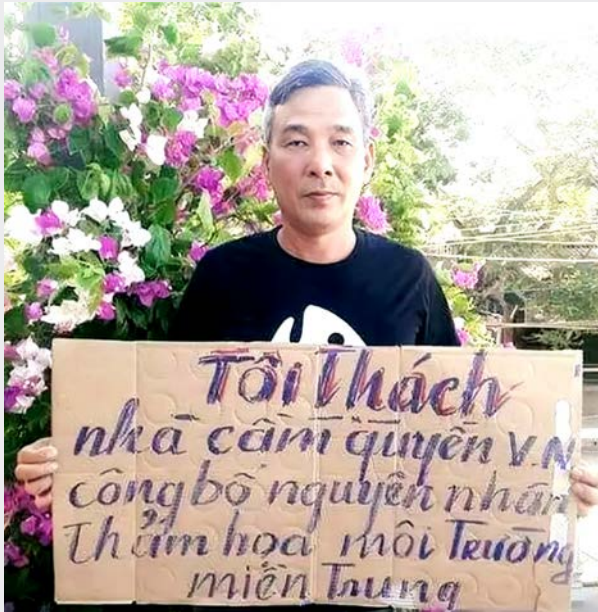 Tôi Thách
nhà cầm quyền V.N
công bố nguyên nhân
Thảm họa môi Trường
miền Trung